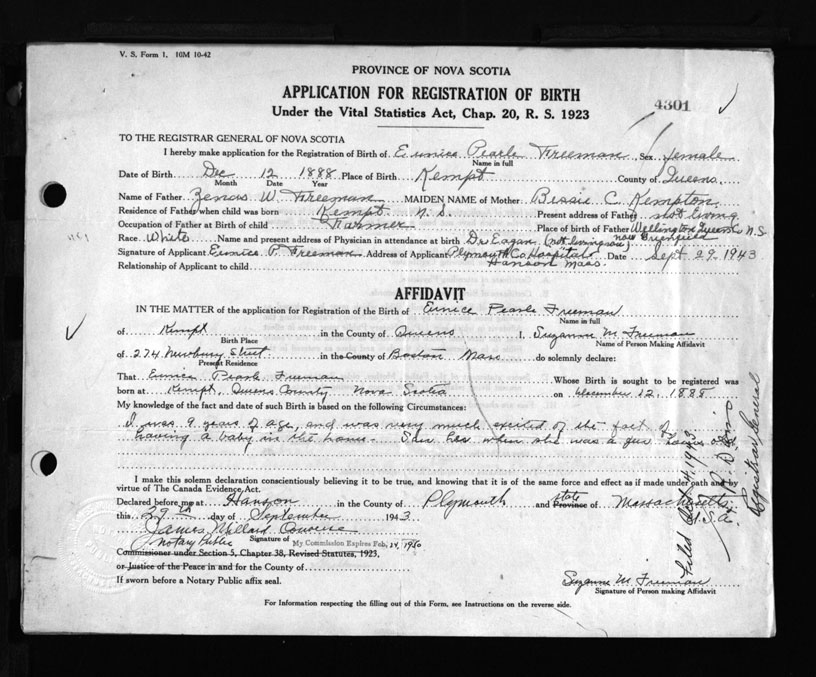 V. S. Form 1. 10M 10-42
PROVINCE OF NOVA SCOTIA
APPLICATION FOR REGISTRATION OF BIRTH
4301
Under the Vital Statistics Act, Chap. 20, R. S. 1923
TO THE REGISTRAR GENERAL OF NOVA SCOTIA
I hereby make application for the Registration of Birth of Eunice Pearle Freeman, Sex female
Name in full
Date of Birth Dec 12 1888 Place of Birth Kempt County of Queens
Month Date Year
Name of Father Zenas W. Freeman MAIDEN NAME of Mother Bessie C. Kempton
Residence of Father when child was born Kempt N. S. Present address of Father not living
Occupation of Father at Birth of child Farmer Place of birth of Father Wellington Queens N.S.
now Greenfield
Race White Name and present address of Physician in attendance at birth Dr Eagan (not living now)
Signature of Applicant Eunice P. Freeman Address of Applicant Plymouth Co Hospital Date Sept 29, 1943
Hanson Mass.
Relationship of Applicant to child
AFFIDAVIT
IN THE MATTER of the application for Registration of the Birth of Eunice Pearle Freeman
Name in full
of Kempt in the County of Queens I, Suzanne M Freeman
Birth Place Name of Person Making Affidavit
of 274 Newbury Street in the County of Boston Mass do solemnly declare:
Present Residence
That Eunice Pearle Freeman Whose Birth is sought to be registered was
born at Kempt, Queens County Nova Scotia on December 12, 1888
My knowledge of the fact and date of such Birth is based on the following Circumstances:
I was 9 years of age, and was very much excited of the fact of
having a baby in the home. Saw her when she was a few hours old
I make this solemn declaration conscientiously believing it to be true, and knowing that it is of the same force and effect as if made under oath and by
virtue of The Canada Evidence Act.
Declared before me at Hanson in the County of Plymouth and state Province of Massachusetts
U.S.A.
this 29th day of September 1943.
James Millard
Signature of
Notary Public My Commission Expires Feb. 14, 1950
Commissioner under Section 5, Chapter 38, Revised Statutes, 1923,
or Justice of the Peace in and for the County of
If sworn before a Notary Public affix seal.
Suzanne M. Freeman
Signature of Person making Affidavit
For Information respecting the filling out of this Form, see Instructions on the reverse side.
Filed 1943
Registrar General